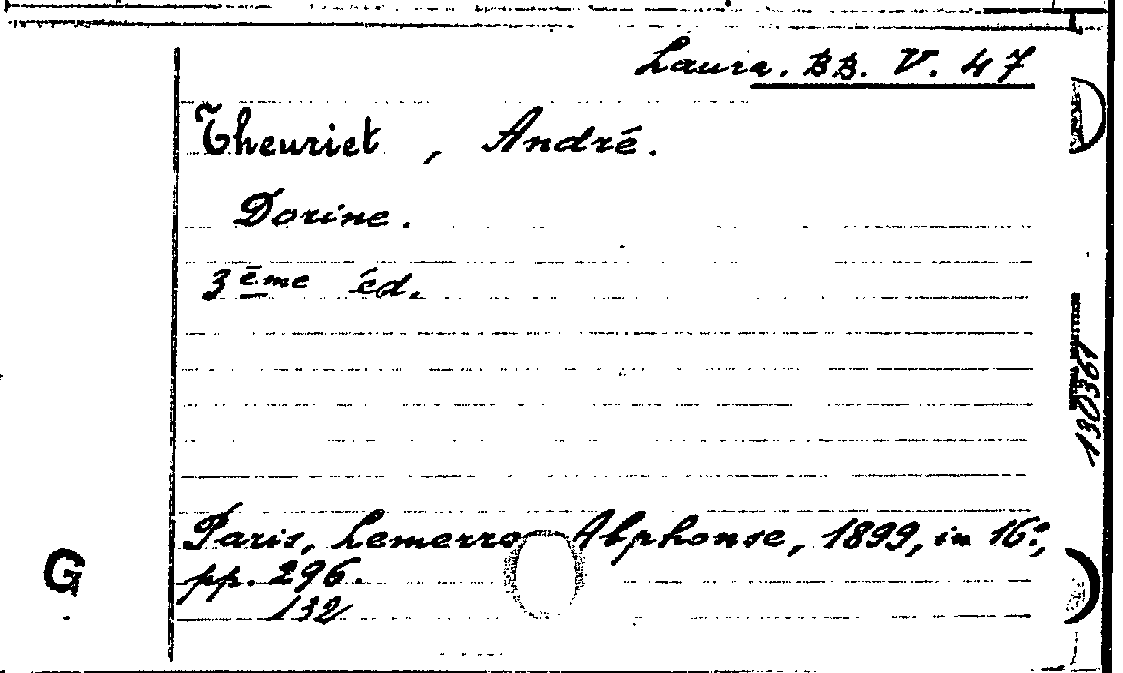 Laura. BB. V. 47
Theuriet, André.
Dorine.
3ème éd.
Paris, Lemerre Alphonse, 1899, in 16°,
pp. 296.
132
G
130361